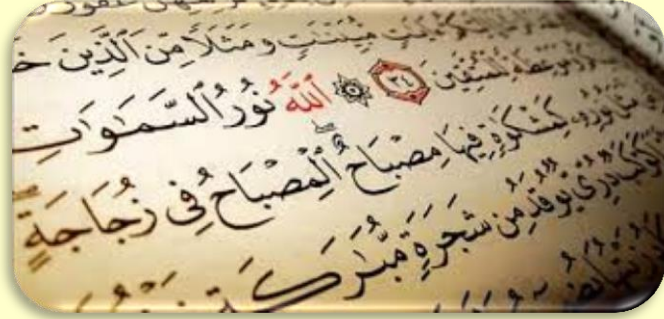 غَفُورٌ
مُّبَيِّنَٰتٍ وَمَثَلًا مِّنَ ٱلَّذِينَ
وَمَوْعِظَةً لِّلْمُتَّقِينَ ٣٤ ۞ ٱللَّهُ نُورُ ٱلسَّمَٰوَٰتِ
نُورِهِۦ كَمِشْكَوٰةٍ فِيهَا مِصْبَاحٌ ٱلْمِصْبَاحُ فِى زُجَاجَةٍ
كَوْكَبٌ دُرِّىٌّ يُوقَدُ مِن شَجَرَةٍ مُّبَٰرَكَةٍ